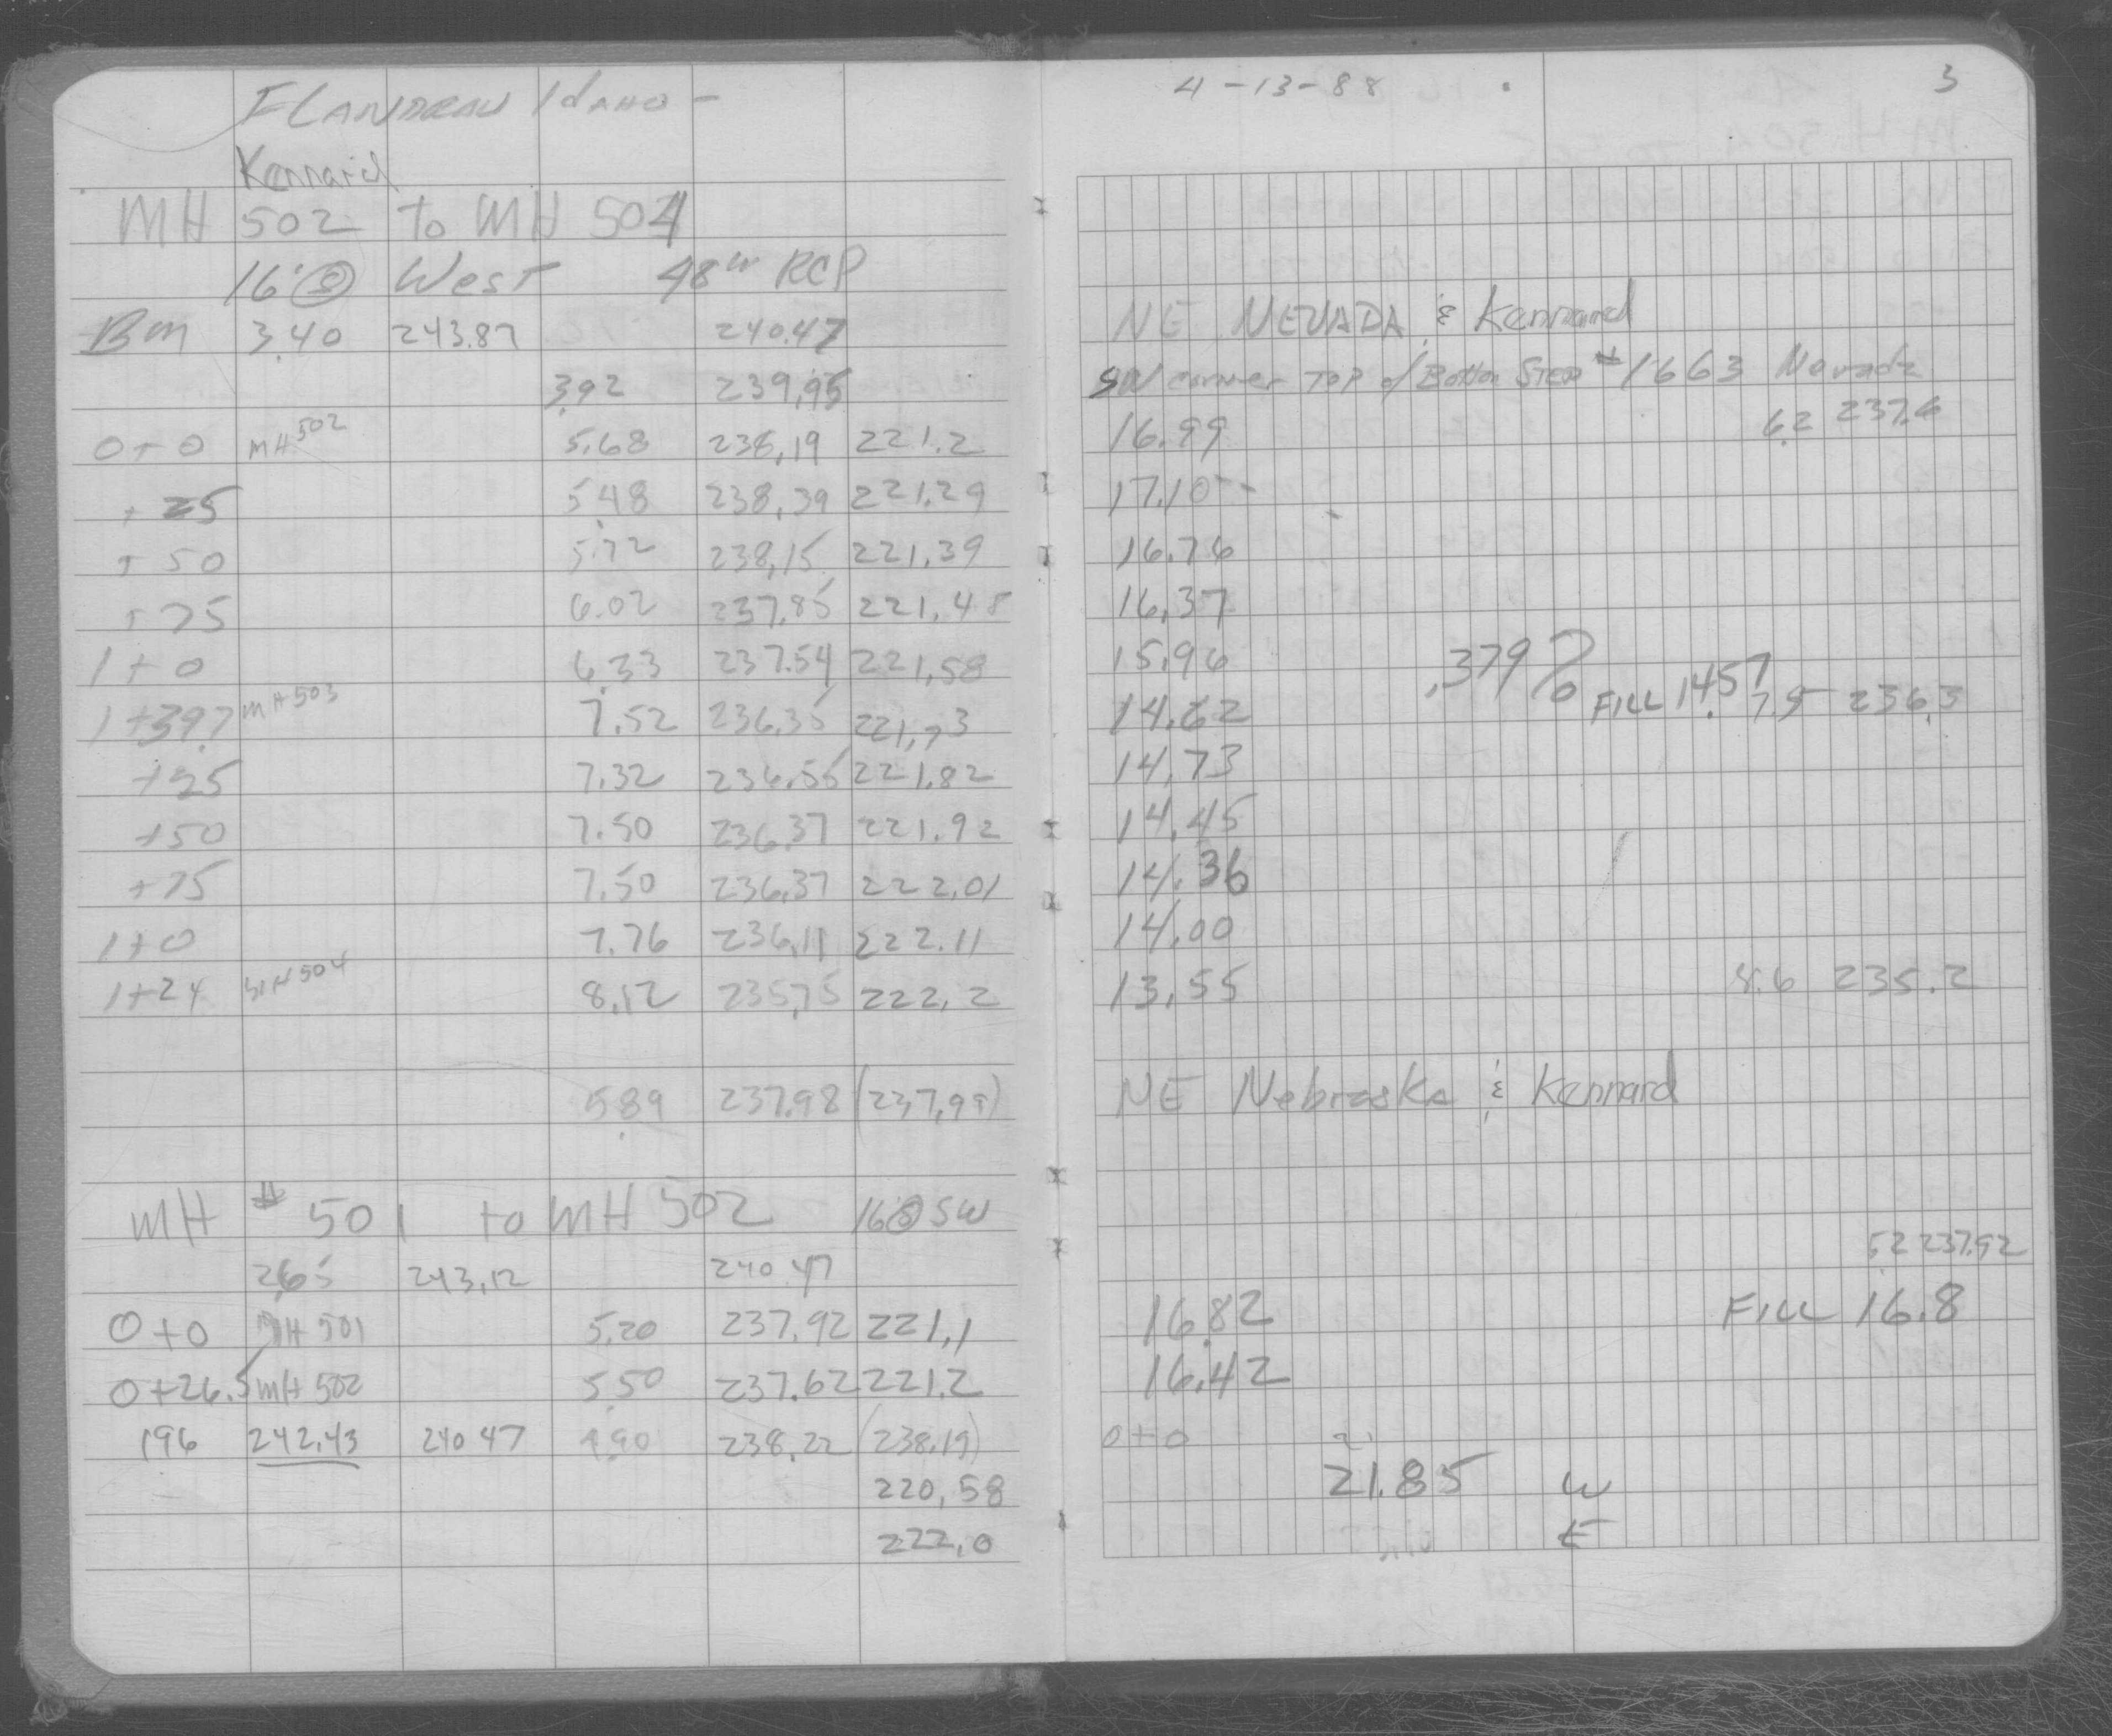 FLANDREAU Idaho -
Kennard
MH 502 To MH 504
16' @ West 48" RCP
BM 3.40 243.87 240.47
3.92 239.95
0+0 MH 502 5.68 238.19 221.2
+25 5.48 238.39 221.29
+50 5.72 238.15 221.39
+75 6.02 237.85 221.48
1+0 6.33 237.54 221.58
1+39.7 MH 503 7.52 236.35 221.73
+25 7.32 236.55 221.82
+50 7.50 236.37 221.92
+75 7.50 236.37 222.01
1+0 7.76 236.11 222.11
1+24 MH 504 8.12 235.75 222.2
5.89 237.98 (237.99)
MH # 501 to MH 502 16@SW
2.65 243.12 240.47
0+0 MH 501 5.20 237.92 221.1
0+26.5 MH 502 5.50 237.62 221.2
196 242.43 240 47 4.90 238.22 (238.19)
220.58
222.0
4-13-88 3
NE NEVADA & Kennard
SW corner TOP of Bottom Step #1663 Nevada
16.99 6.2 237.6
17.10
16.76
16.37
15.96 .379%
14.62 FILL 14.57 7.5 236.3
14.73
14.45
14.36
14.00
13.55 8.6 235.2
NE Nebraska & Kennard
5.2 237.92
16.82 FILL 16.8
16.42
0+0
21.85 W
E